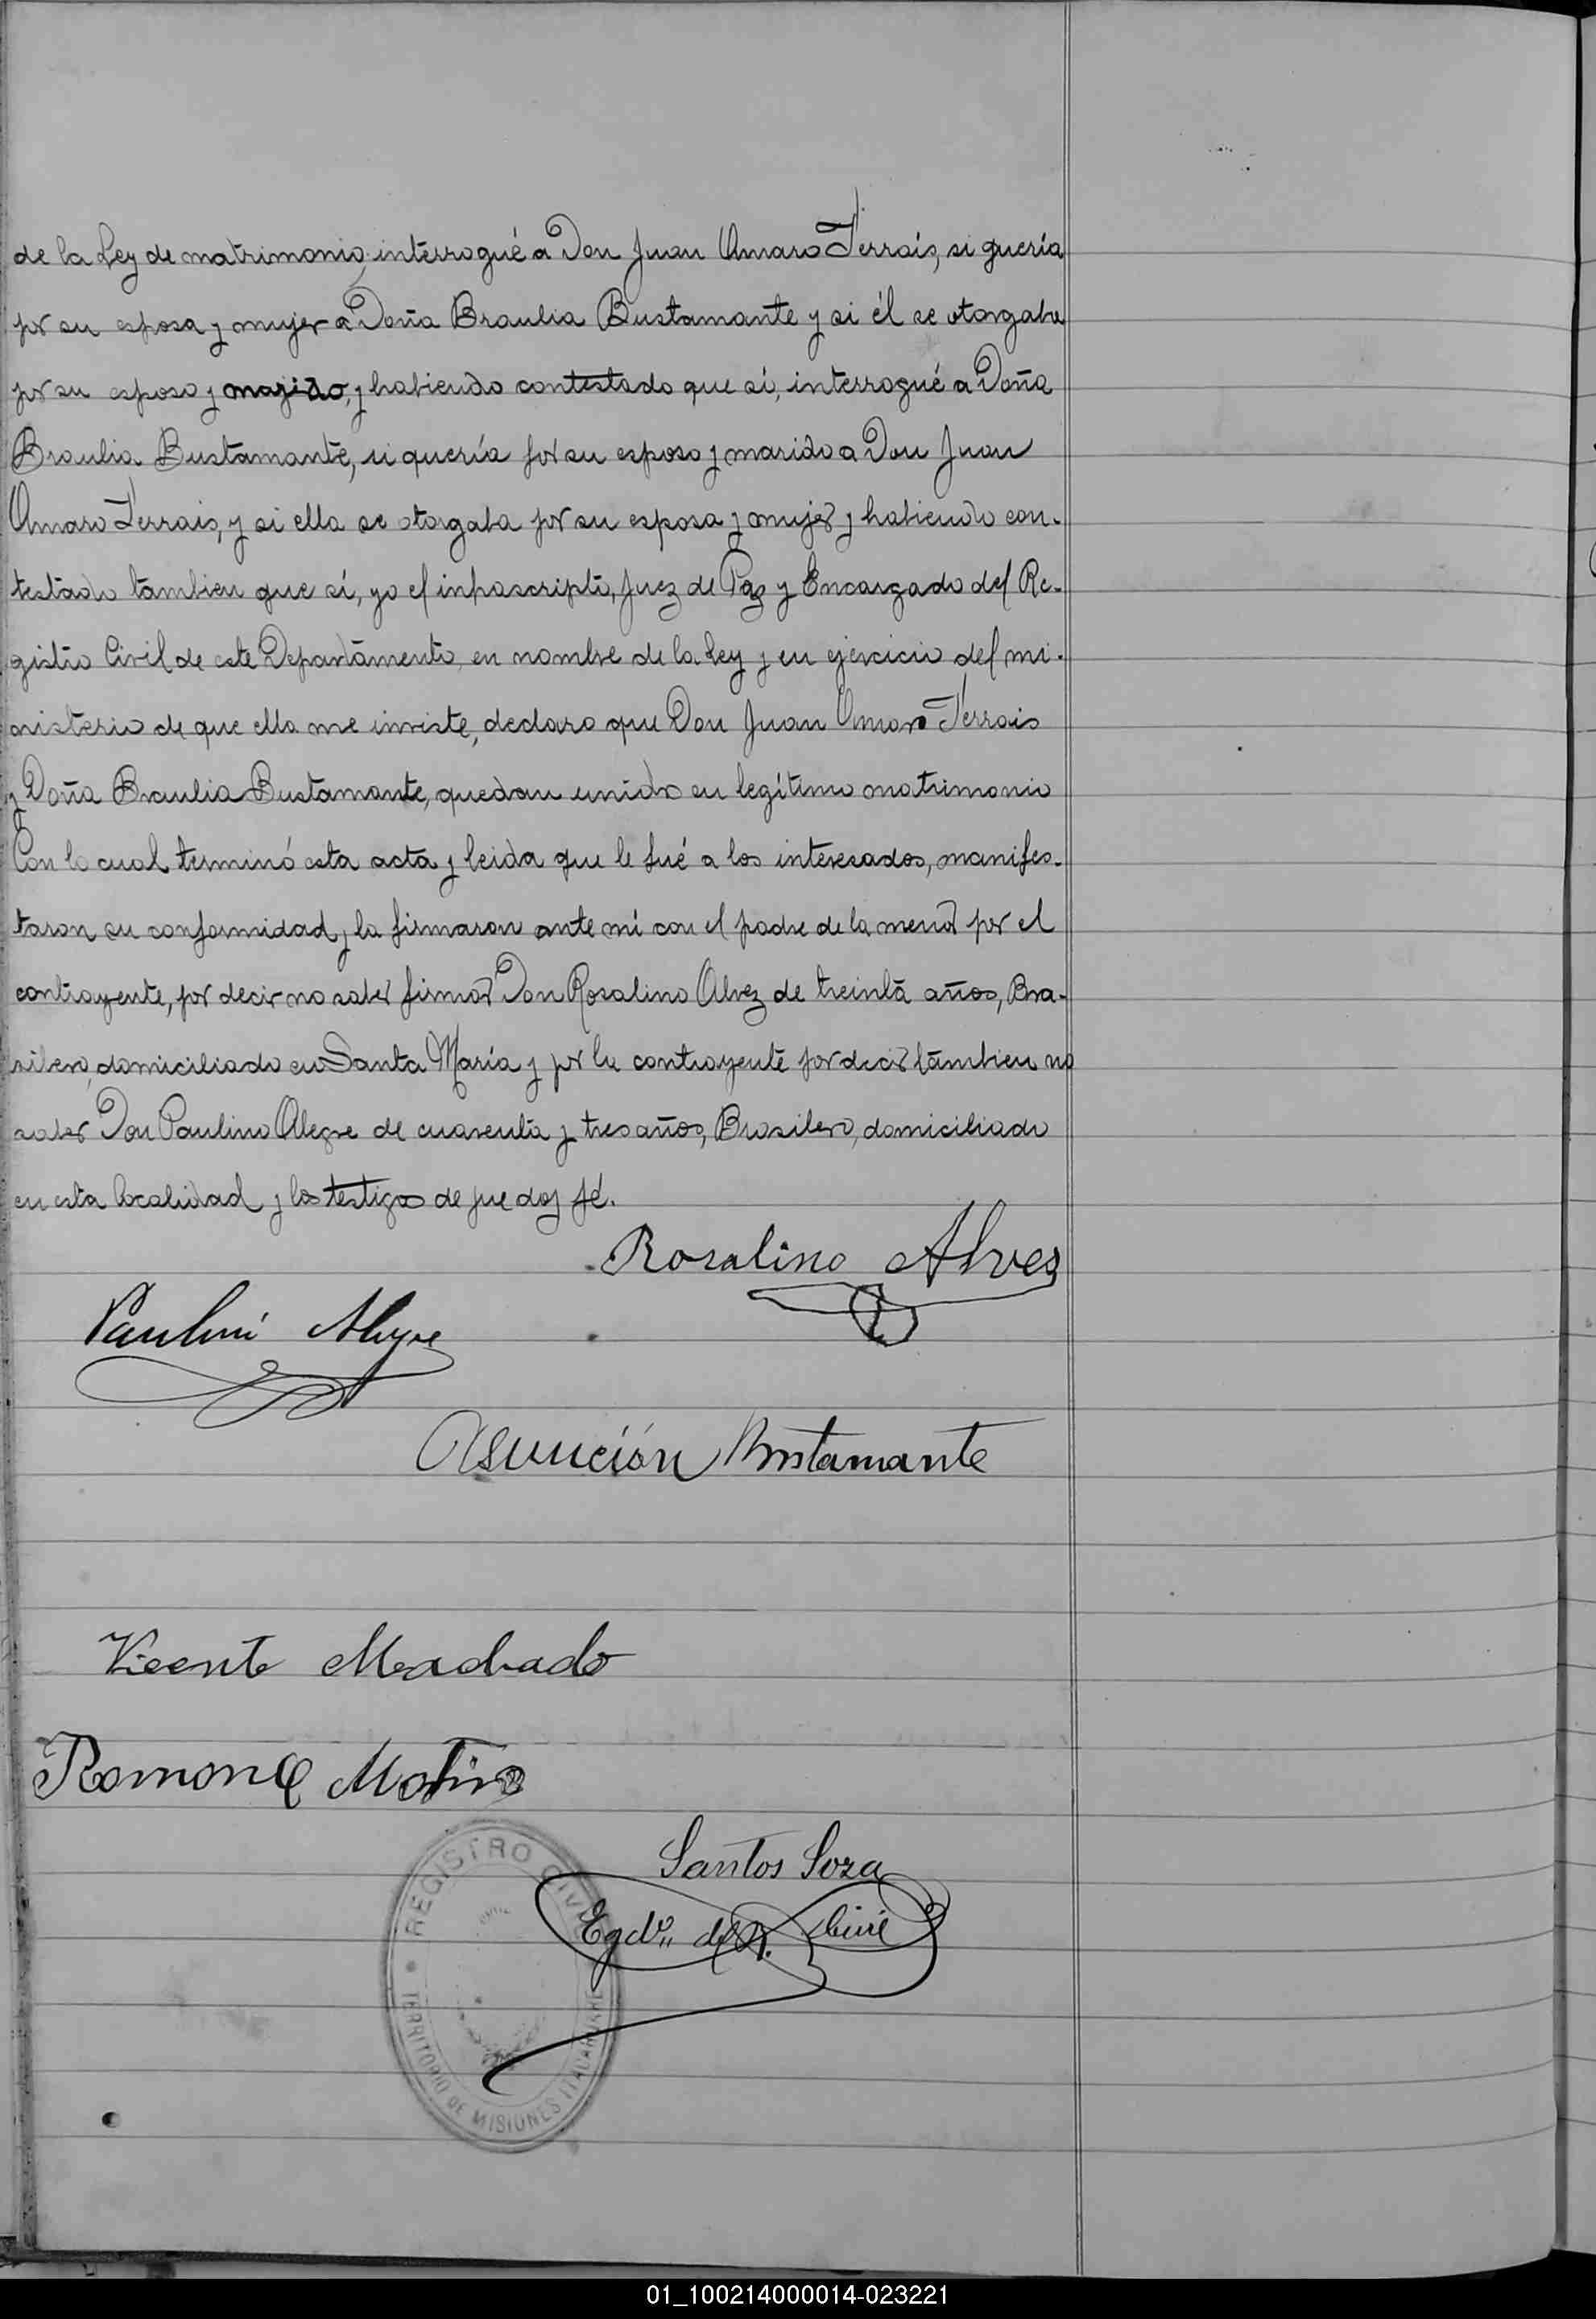 de la Ley de matrimonio, interrogué a Don Juan Amaro Ferrais, si quería
por su esposa y mujer a Doña Braulia Bustamante y si él se otorgaba
por su esposo y marido, y habiendo contestado que sí, interrogué a Doña
Braulia Bustamante, si quería por su esposo y marido a Don Juan
Amaro Ferrais, y si ella se otorgaba por su esposa y mujer y habiendo con-
testado tambien que sí, yo el infrascripto, Juez de Paz y Encargado del Re-
gistro Civil de este Departamento, en nombre de la Ley y en ejercicio del mi-
nisterio de que ella me inviste, declaro que Don Juan Amaro Ferrais
y Doña Braulia Bustamante, quedan unidos en legítimo matrimonio
Con lo cual terminó esta acta y leida que le fué a los interesados, manifes-
taron su conformidad y la firmaron ante mí con el padre de la menor por el
contrayente, por decir no saber firmar Don Rosalino Alvez de treinta años, Bra-
silero, domiciliado en Santa María y por la contrayente por decir tambien no
saber Don Paulino Alegre de cuarenta y tres años, Brasilero, domiciliado
en esta localidad y los testigos de que doy fé.
Rosalino Alves
Paulini Alegre
Asunción Bustamante
Vicente Machado
Ramon Matinos
Santos Soza
Egdo. del R. Civil
REGISTRO CIVIL
TERRITORIO DE MISIONES ITACARUARE
01_100214000014-023221